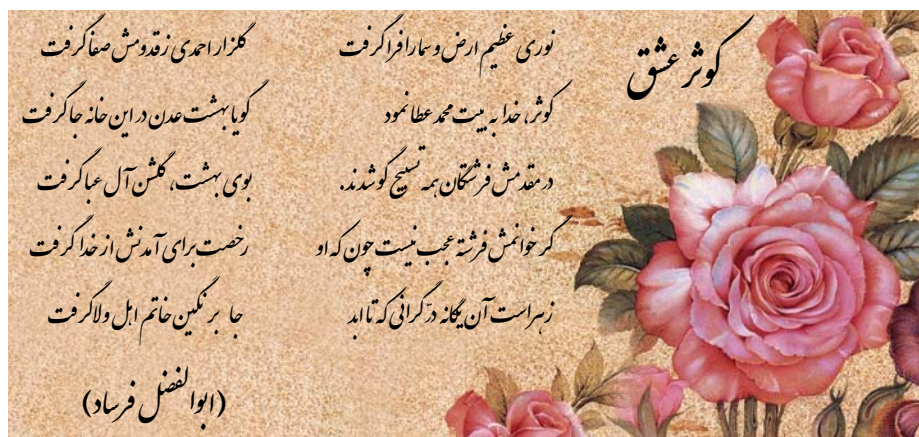 کوثر عشق
نوری عظیم ارض و سما را فرا گرفت گلزار احمدی ز قدومش صفا گرفت
کوثر، خدا به بیت محمد عطا نمود گویا بهشت عدن در این خانه جا گرفت
در مقدمش فرشتگان همه تسبیح گو شدند. بوی بهشت، گلشن آل عبا گرفت
گر خوانمش فرشته عجب نیست چون که او رخصت برای آمدنش از خدا گرفت
زهراست آن یگانه درّ گرانی که تا ابد جا بر نگین خاتم اهل ولا گرفت
(ابوالفضل فرساد)